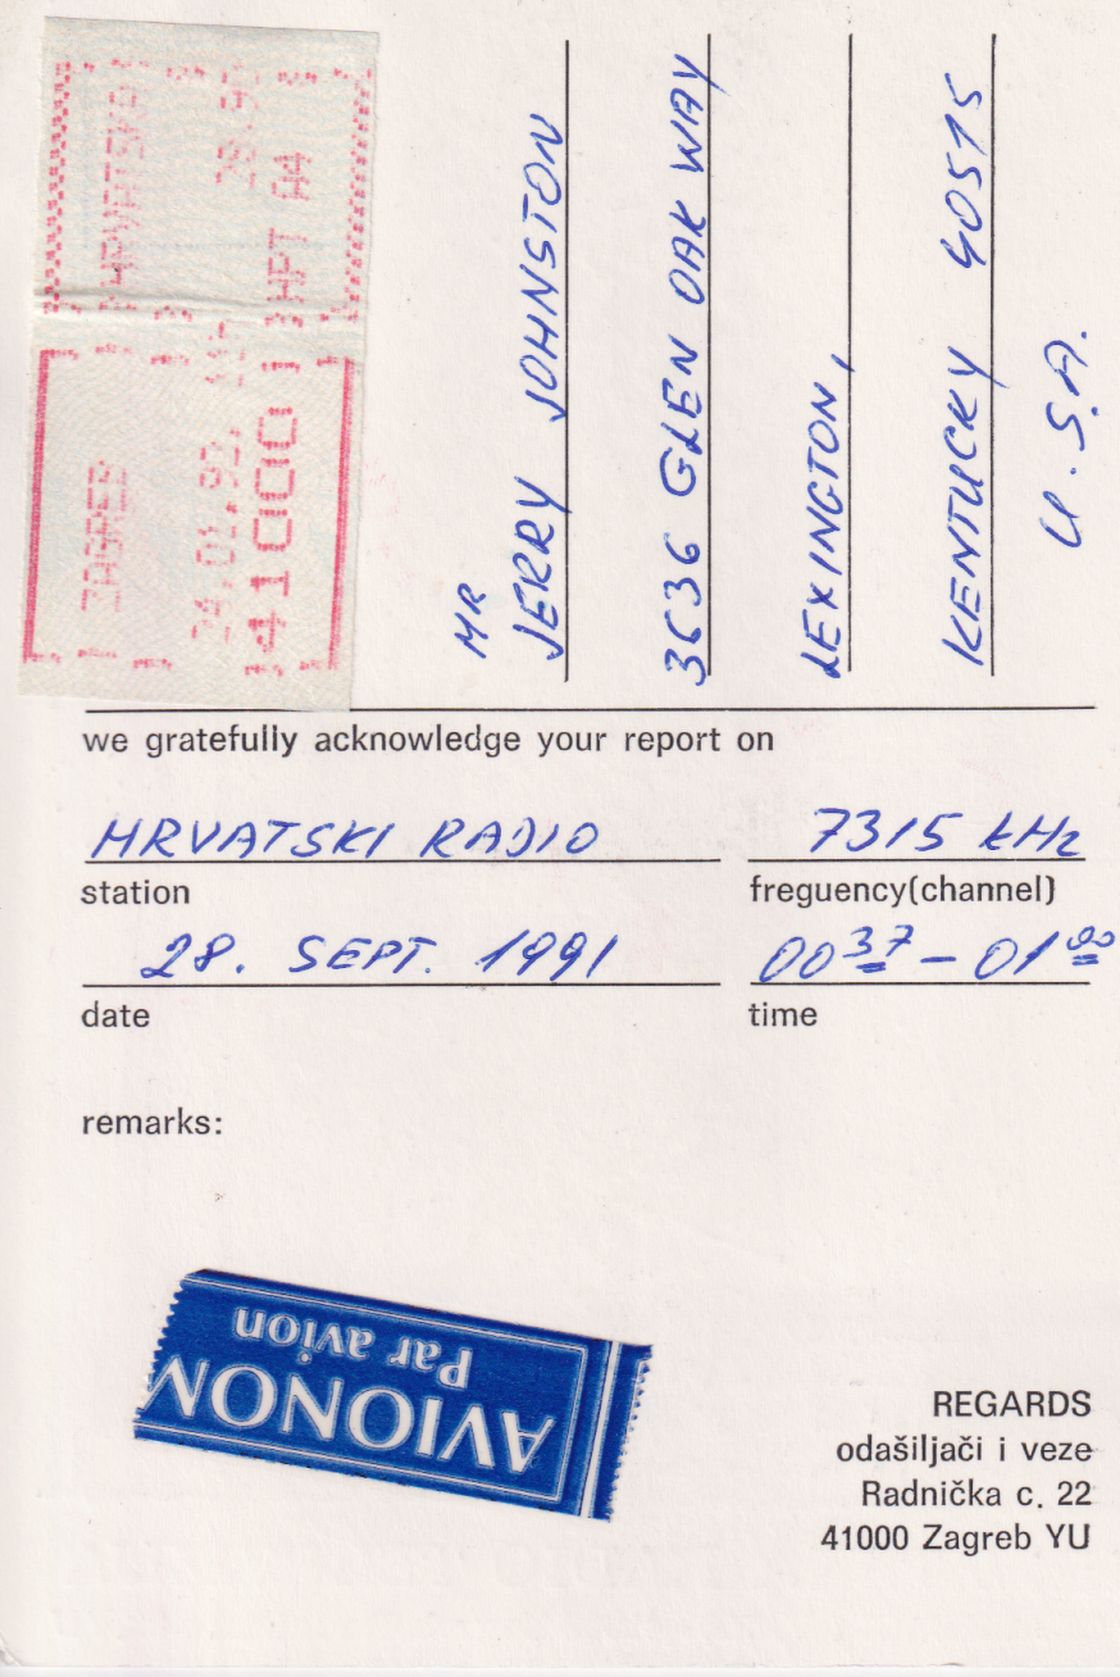 HRVATSKA
HPT A4
ZAGREB
24.01.92.
41000
MR
JERRY JOHNSTON
3636 GLEN OAK WAY
LEXINGTON,
KENTUCKY 40515
U.S.A.
we gratefully acknowledge your report on
HRVATSKI RADIO 7315 kHz
station freguency(channel)
28. SEPT. 1991 00³⁷ – 01⁰⁰
date time
remarks:
AVIONOM
Par avion
REGARDS
odašiljači i veze
Radnička c. 22
41000 Zagreb YU